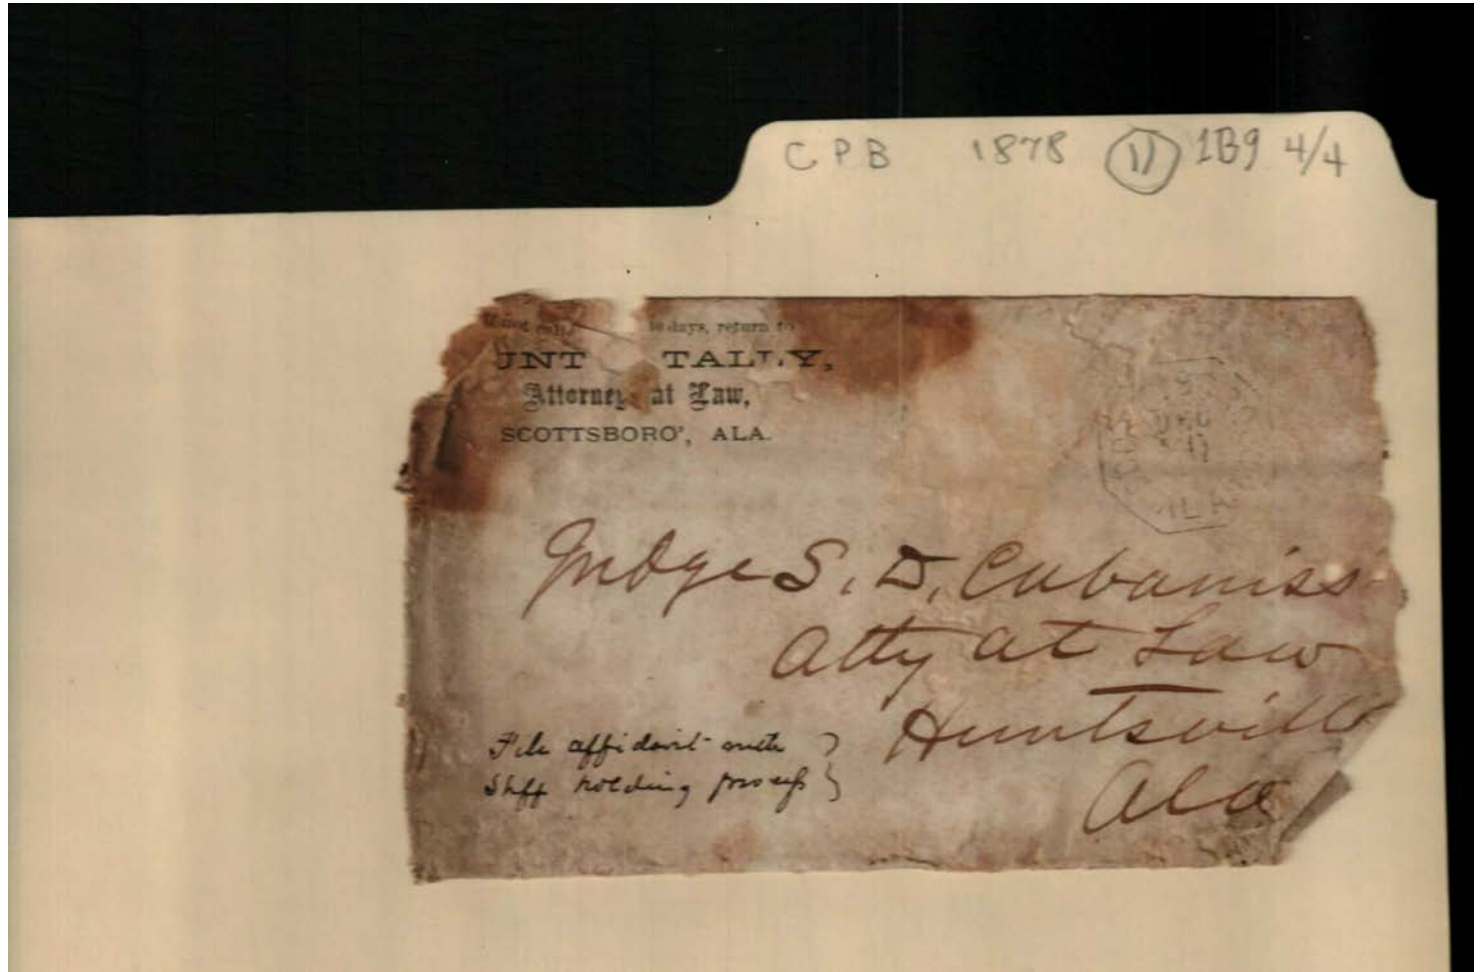 CPB 1878 11 1B9 4/4
days, return to
UNT TALLY,
Attorney at Law,
SCOTTSBORO', ALA.
Judge S. D. Cabaniss
Atty at Law
Huntsville
Ala
File affidavit with
Shff holding process